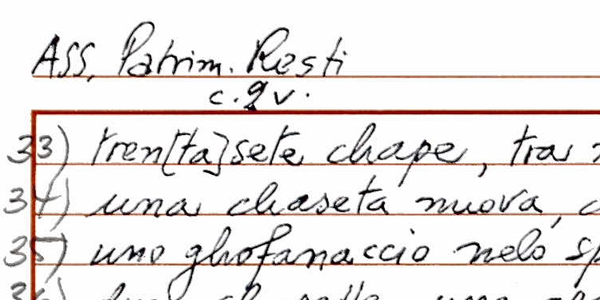 Ass. Patrim. Resti
c. 9 v.
33) tren[ta]sete chape, tra
34) una chaseta nuova,
35) uno ghofanaccio nelo
36)